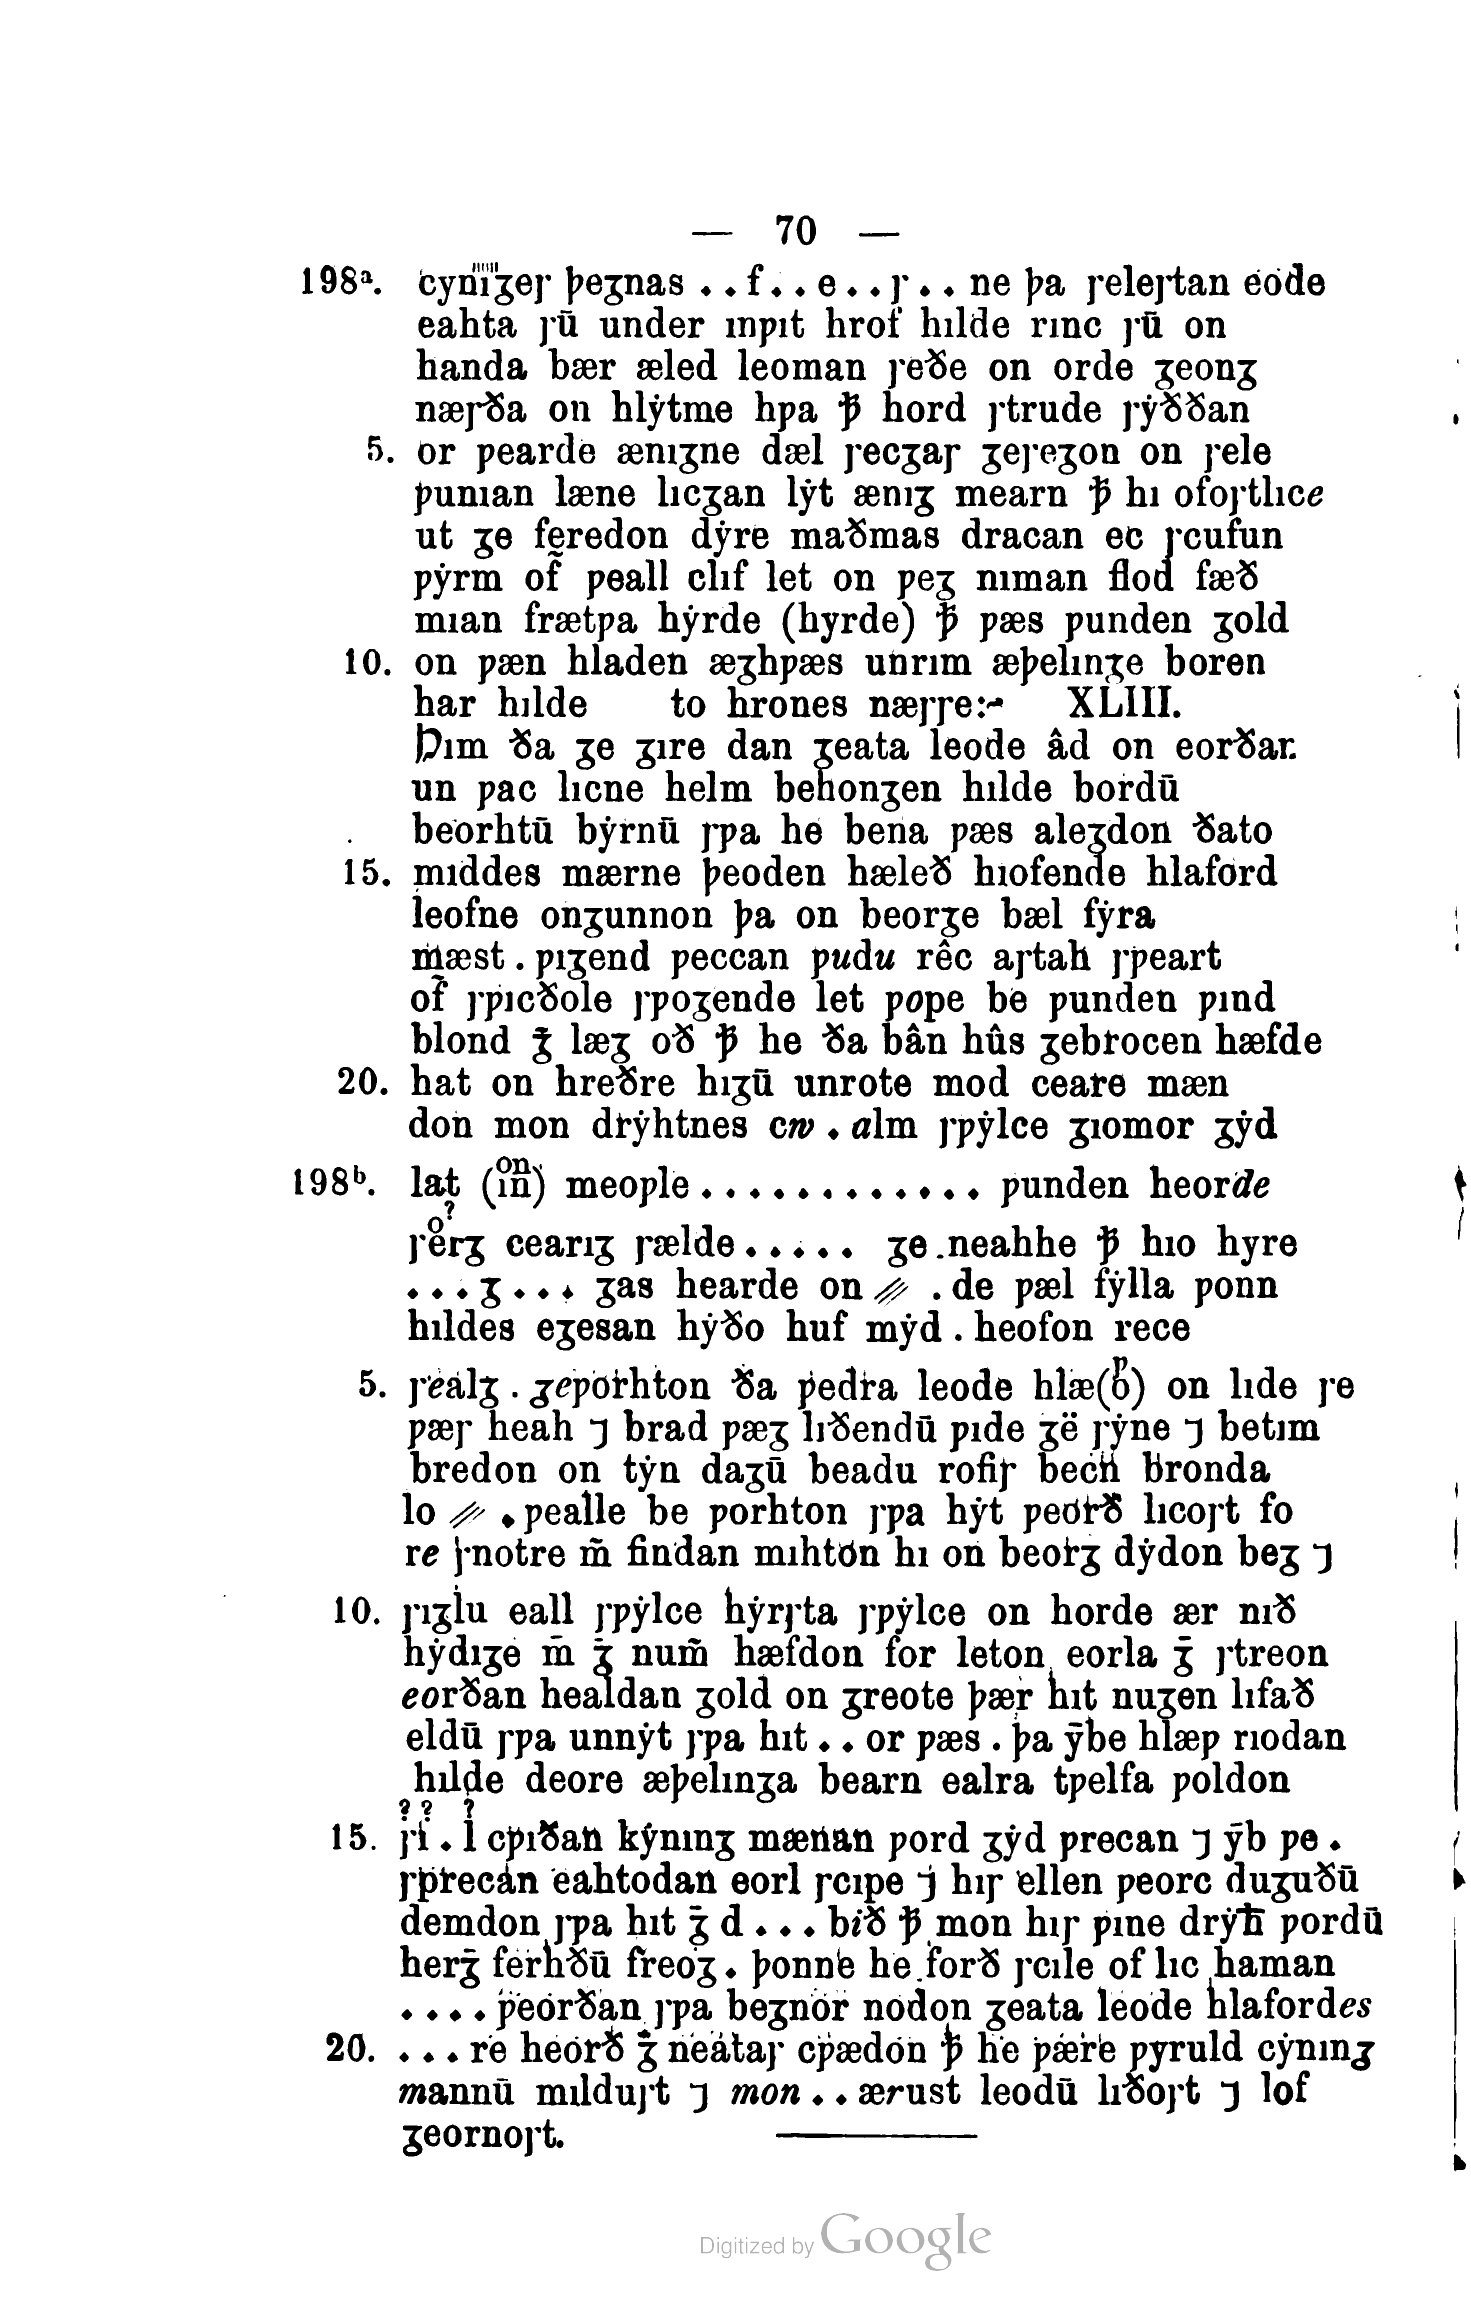 — 70 —
198ᵃ. cynıᵹeꞅ þeᵹnas . . f . . e . . ꞅ . . ne þa ꞅeleꞅtan eode
eahta ꞅū under ınƿıt hrof hılde rınc ꞅū on
handa bær æled leoman ꞅeðe on orde ᵹeonᵹ
næꞅða on hlẏtme hƿa ꝥ hord ꞅtrude ꞅẏððan
5. or ƿearde ænıᵹne dæl ꞅecᵹaꞅ ᵹeꞅeᵹon on ꞅele
ƿunıan læne lıcᵹan lẏt ænıᵹ mearn ꝥ hı ofoꞅtlıce
ut ᵹe feredon dẏre maðmas dracan ec ꞅcufun
ƿẏrm of ƿeall clıf let on ƿeᵹ nıman flod fæð
mıan frætƿa hẏrde (hyrde) ꝥ ƿæs ƿunden ᵹold
10. on ƿæn hladen æᵹhƿæs unrım æþelınᵹe boren
har hılde to hrones næꞅꞅe:⁊ XLIII.
Þım ða ᵹe ᵹıre dan ᵹeata leode âd on eorðan
un ƿac lıcne helm behonᵹen hılde bordū
beorhtū bẏrnū ꞅƿa he bena ƿæs aleᵹdon ðato
15. mıddes mærne þeoden hæleð hıofende hlaford
leofne onᵹunnon þa on beorᵹe bæl fẏra
mæst . ƿıᵹend ƿeccan ƿudu rêc aꞅtah ꞅƿeart
of ꞅƿıcðole ꞅƿoᵹende let ƿoƿe be ƿunden ƿınd
blond ᵹ̄ læᵹ oð ꝥ he ða bân hûs ᵹebrocen hæfde
20. hat on hreðre hıᵹū unrote mod ceare mæn
don mon drẏhtnes cw . alm ꞅƿẏlce ᵹıomor ᵹẏd
198ᵇ. lat (on in) meoƿle . . . . . . . . . . . . ƿunden heorde
ꞅerᵹ cearıᵹ ꞅælde . . . . . ᵹe .neahhe ꝥ hıo hyre
. . . ᵹ . . . ᵹas hearde on ⫽ . de ƿæl fẏlla ƿonn
hıldes eᵹesan hẏðo huf mẏd . heofon rece
5. ꞅealᵹ . ᵹeƿorhton ða ƿedra leode hlæ(o) on lıde ꞅe
ƿæꞅ heah ⁊ brad ƿæᵹ lıðendū ƿıde ᵹë ꞅẏne ⁊ betım
bredon on tẏn daᵹū beadu rofıꞅ becn bronda
lo ⫽ . ƿealle be ƿorhton ꞅƿa hẏt ƿeorð lıcoꞅt fo
re ꞅnotre m̄ findan mıhton hı on beorᵹ dẏdon beᵹ ⁊
10. ꞅıᵹlu eall ꞅƿẏlce hẏrꞅta ꞅƿẏlce on horde ær nıð
hẏdıᵹe m̄ ᵹ̄ num̄ hæfdon for leton eorla ᵹ̄ ꞅtreon
eorðan healdan ᵹold on ᵹreote þær hıt nuᵹen lıfað
eldū ꞅƿa unnẏt ꞅƿa hıt . . or ƿæs . þa ȳbe hlæƿ rıodan
hılde deore æþelınᵹa bearn ealra tƿelfa ƿoldon
15. ꞅı . l cƿıðan kẏnınᵹ mænan ƿord ᵹẏd ƿrecan ⁊ ȳb ƿe .
ꞅƿrecan eahtodan eorl ꞅcıƿe ⁊ hıꞅ ellen ƿeorc duᵹuðū
demdon ꞅƿa hıt ᵹ̄ d . . . bıð ꝥ mon hıꞅ ƿıne drẏħ ƿordū
herᵹ̄ ferhðū freoᵹ . þonne he forð ꞅcıle of lıc haman
. . . . ƿeorðan ꞅƿa beᵹnor nodon ᵹeata leode hlafordes
20. . . . re heorð ᵹ̄ neataꞅ cƿædon ꝥ he ƿære ƿyruld cẏnınᵹ
mannū mılduꞅt ⁊ mon . . ærust leodū lıðoꞅt ⁊ lof
ᵹeornoꞅt.
Digitized by Google